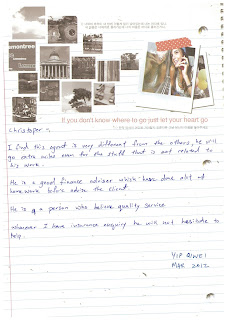 If you don't know where to go just let your heart go
Christoper,
I find this agent is very different from the others, he will
go extra miles even for the stuff that is not related to
his work.
He is a good finance adviser which have done alot of
home work before advise the client.
He is a person who believe quality service
whenever I have insurance enquiry he will not hesitate to
help.
YIP AIWEI
MAR 2012